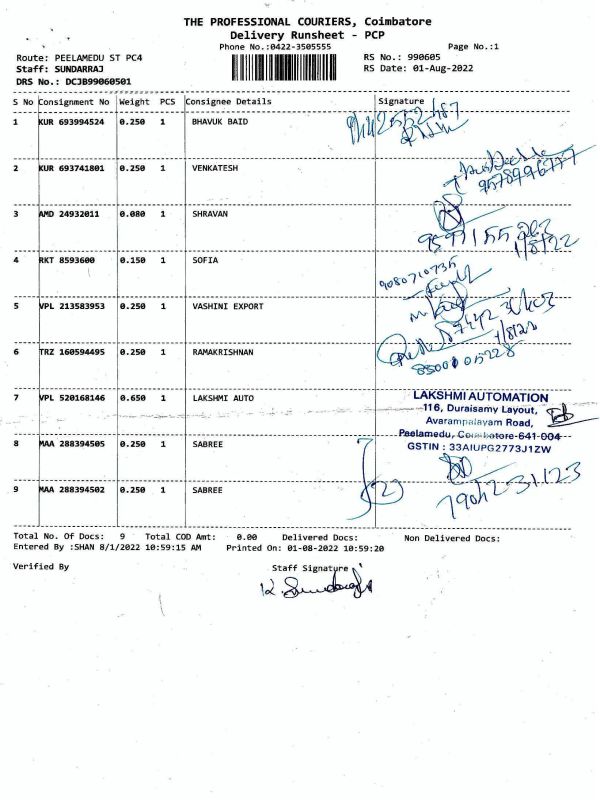 THE PROFESSIONAL COURIERS, Coimbatore
Delivery Runsheet - PCP
Phone No.:0422-3505555 Page No.:1
Route: PEELAMEDU ST PC4 RS No.: 990605
Staff: SUNDARRAJ RS Date: 01-Aug-2022
DRS No.: DCJB99060501
S No Consignment No Weight PCS Consignee Details Signature
1 KUR 693994524 0.250 1 BHAVUK BAID
2 KUR 693741801 0.250 1 VENKATESH
9578996777
3 AMD 24932011 0.080 1 SHRAVAN
1/8/22
4 RKT 8593600 0.150 1 SOFIA
9080710735
5 VPL 213583953 0.250 1 VASHINI EXPORT
6 TRZ 160594495 0.250 1 RAMAKRISHNAN
7 VPL 520168146 0.650 1 LAKSHMI AUTO
LAKSHMI AUTOMATION
116, Duraisamy Layout,
Avarampalayam Road,
Peelamedu, Coimbatore-641 004
GSTIN : 33AIUPG2773J1ZW
8 MAA 288394505 0.250 1 SABREE
9 MAA 288394502 0.250 1 SABREE
Total No. Of Docs: 9 Total COD Amt: 0.00 Delivered Docs: Non Delivered Docs:
Entered By :SHAN 8/1/2022 10:59:15 AM Printed On: 01-08-2022 10:59:20
Verified By Staff Signature